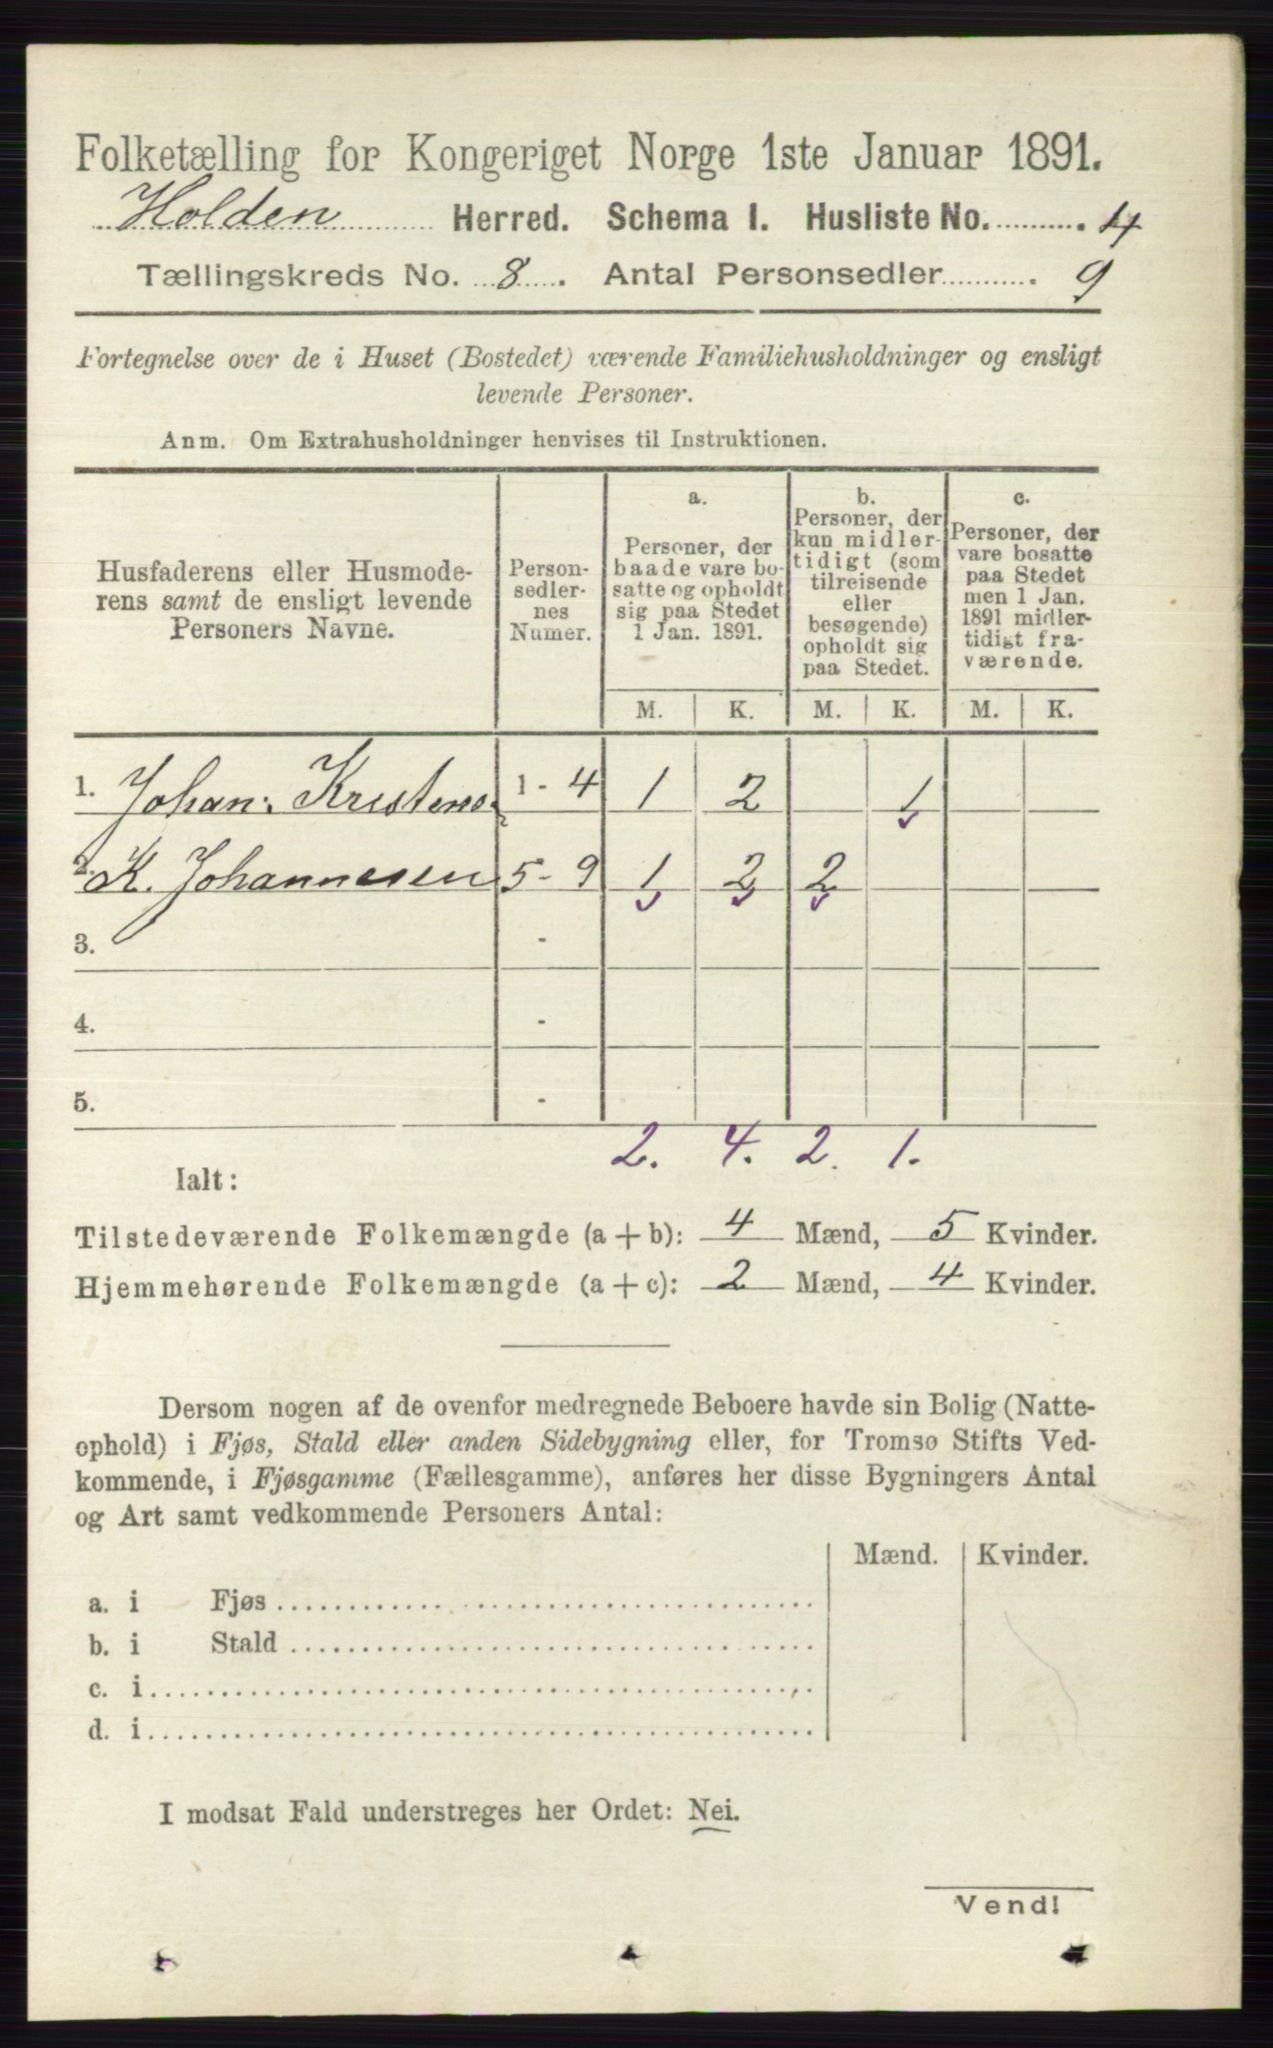 Folketælling for Kongeriget Norge 1ste Januar 1891.
Holden Herred. Schema I. Husliste No. 4
Tællingskreds No. 8. Antal Personsedler 9
Fortegnelse over de i Huset (Bostedet) værende Familiehusholdninger og ensligt
levende Personer.
Anm. Om Extrahusholdninger henvises til Instruktionen.
Husfaderens eller Husmode-
rens samt de ensligt levende
Personers Navne.
Person-
sedler-
nes
Numer.
a.
Personer, der
baade vare bo-
satte og opholdt
sig paa Stedet
1 Jan. 1891.
b.
Personer, der
kun midler-
tidigt (som
tilreisende
eller
besøgende)
opholdt sig
paa Stedet.
c.
Personer, der
vare bosatte
paa Stedet
men 1 Jan.
1891 midler-
tidigt fra-
værende.
M. K. M. K. M. K.
1. Johan: 1 - 4 1 2 1
2. K. Johannesen 5 - 9 1 2 2
3. -
4. -
5. -
2. 4. 2. 1.
Ialt:
Tilstedeværende Folkemængde (a + b): 4 Mænd, 5 Kvinder.
Hjemmehørende Folkemængde (a + c): 2 Mænd, 4 Kvinder.
Dersom nogen af de ovenfor medregnede Beboere havde sin Bolig (Natte-
ophold) i Fjøs, Stald eller anden Sidebygning eller, for Tromsø Stifts Ved-
kommende, i Fjøsgamme (Fællesgamme), anføres her disse Bygningers Antal
og Art samt vedkommende Personers Antal:
Mænd. Kvinder.
a. i Fjøs
b. i Stald
c. i
d. i
I modsat Fald understreges her Ordet: Nei.
Vend!